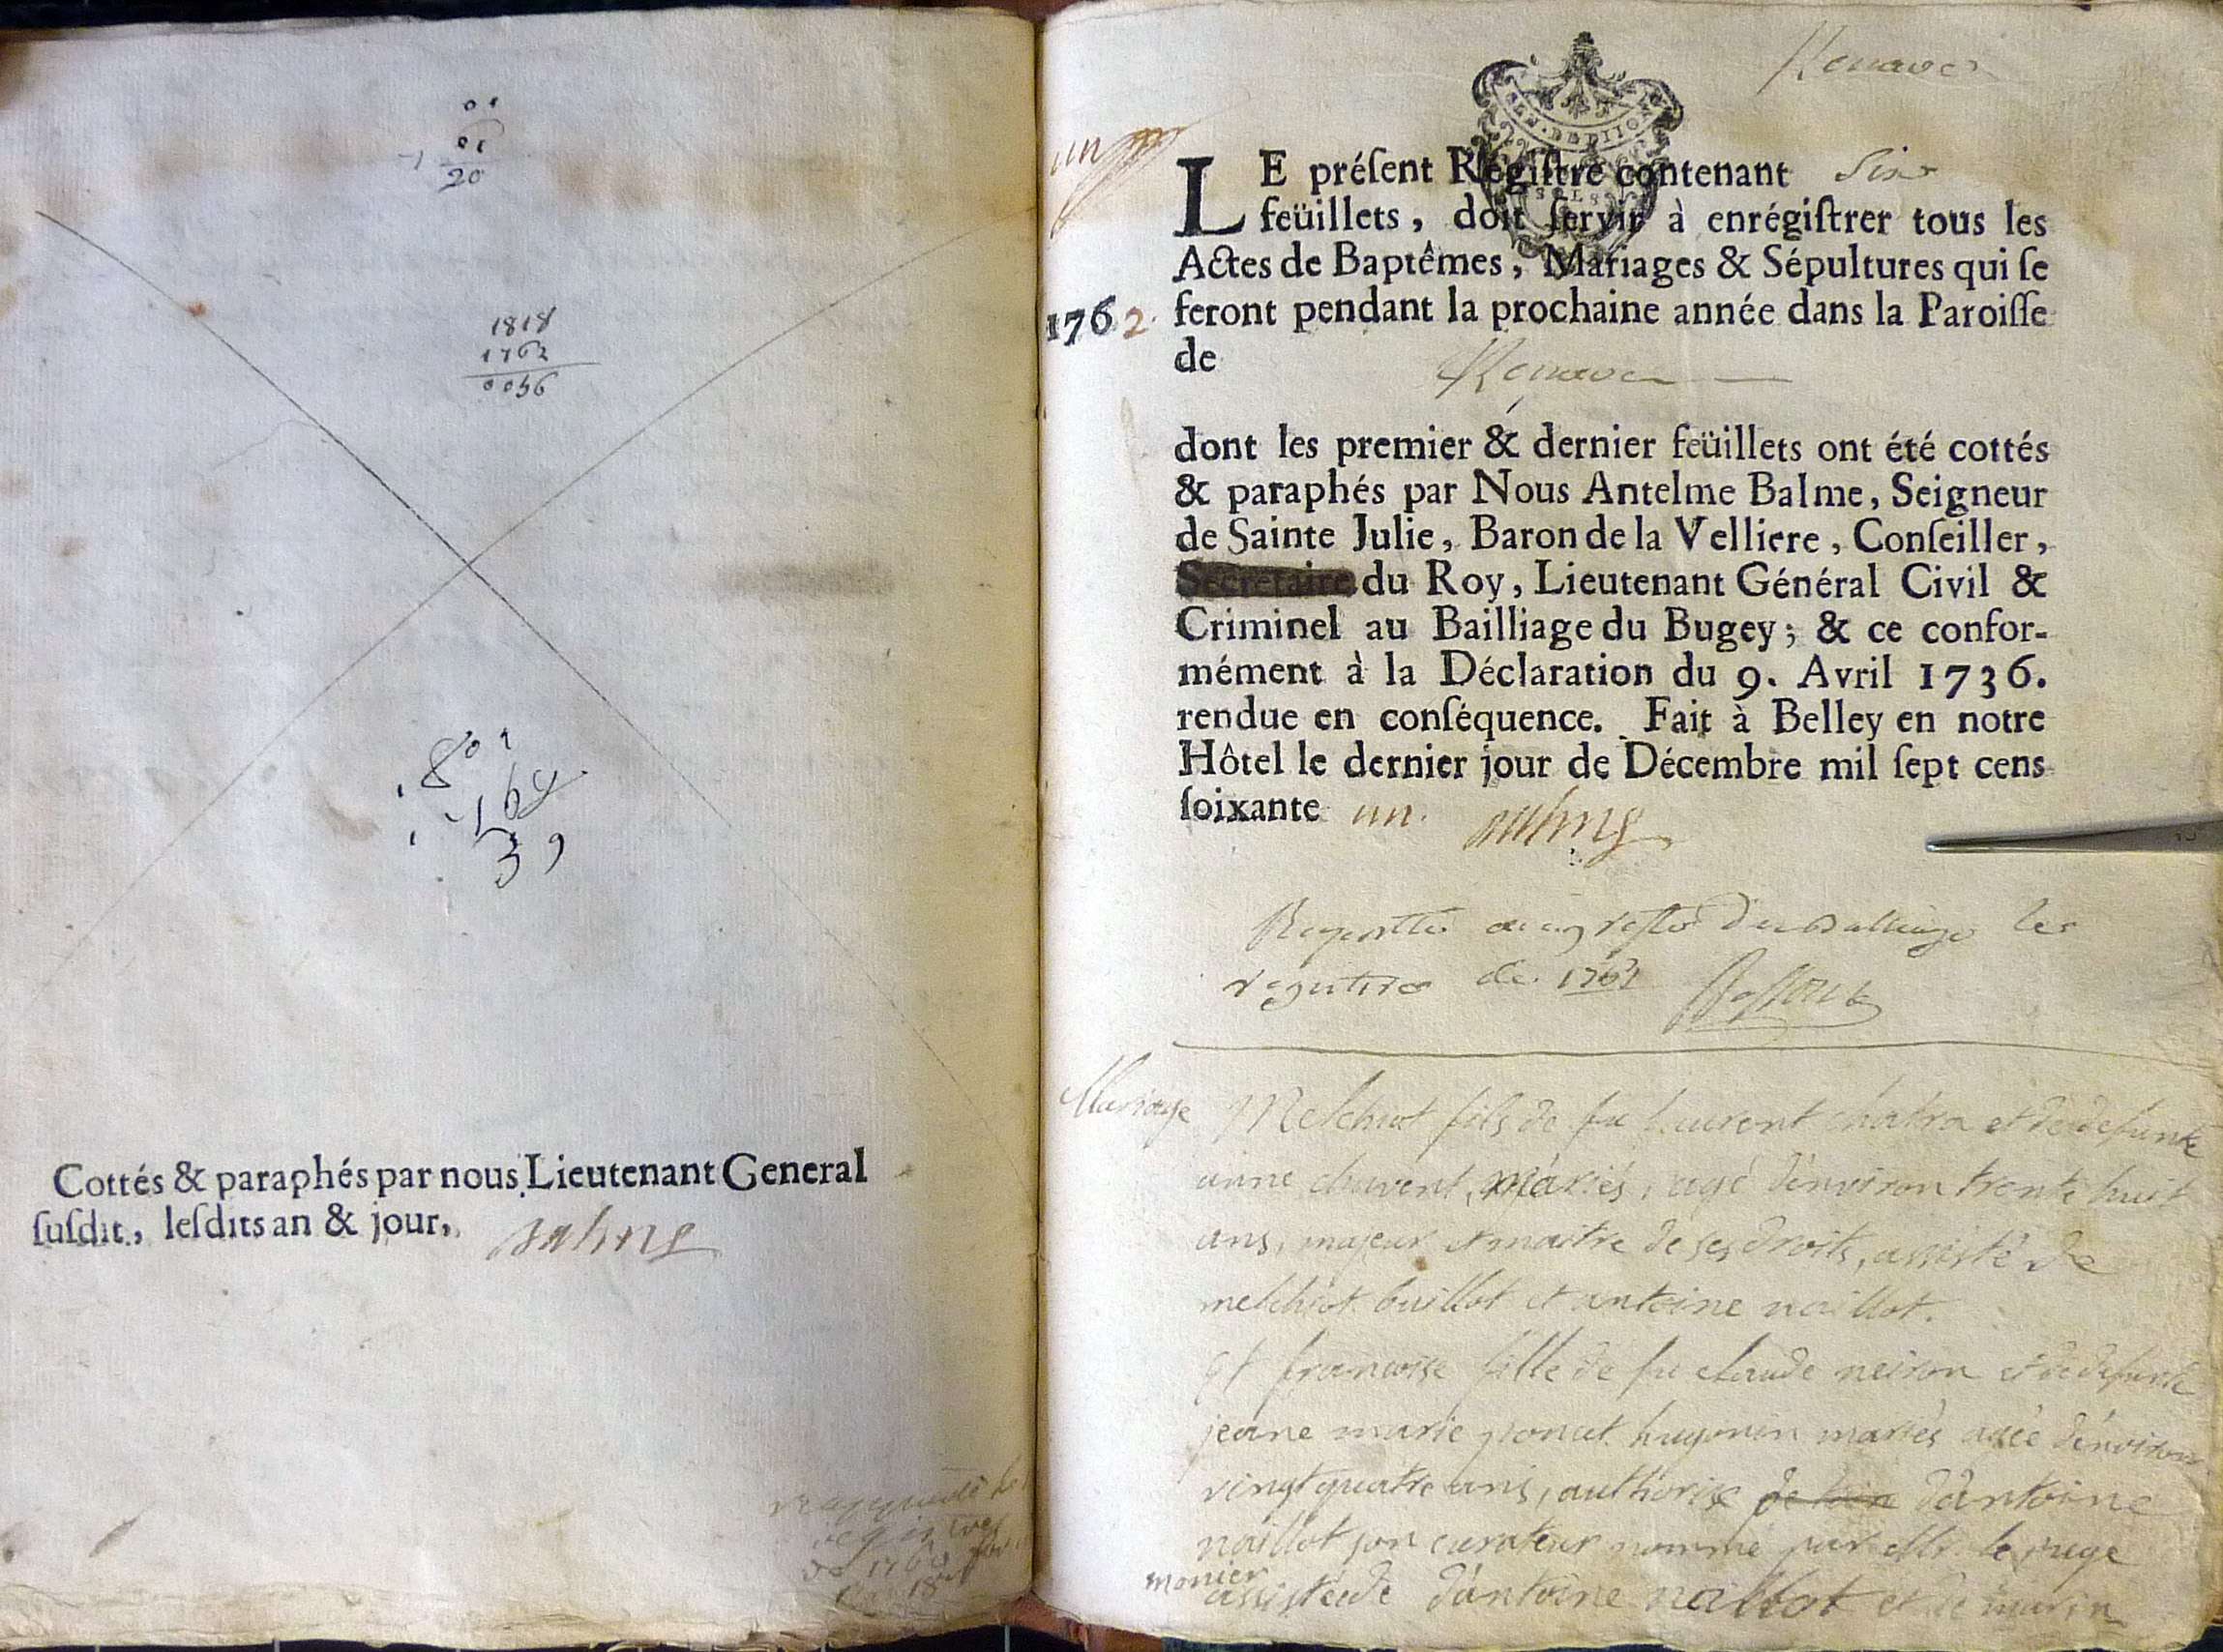 01
01
20
1818
1762
0056
1801
1762
39
Cottés & paraphés par nous Lieutenant General
ſuſdit, leſdits an & jour,
registres
un
LE préſent Régiſtre contenant Six
feüillets, doit ſervir à enrégiſtrer tous les
Actes de Baptêmes, Mariages & Sépultures qui ſe
1762. feront pendant la prochaine année dans la Paroiſſe
de
dont les premier & dernier feüillets ont été cottés
& paraphés par Nous Antelme Balme, Seigneur
de Sainte Julie, Baron de la Velliere, Conſeiller,
Secretaire du Roy, Lieutenant Général Civil &
Criminel au Bailliage du Bugey; & ce confor-
mément à la Déclaration du 9. Avril 1736.
rendue en conſéquence. Fait à Belley en notre
Hôtel le dernier jour de Décembre mil ſept cens
ſoixante un.
les
registres de 1761
Mariage Melchiot fils de fu Laurent chatra et de defunte
anne chavent, mariés, agé d'environ trente huit
ans, majeur et maitre de ses droits, assisté de
melchiot buillot et antoine naillot.
et francoise fille de fu claude neiron et de defunte
jeane marie poncet hugonin mariés agée d'environ
vingt quatre ans, authorise d'antoine
naillot son curateur nommé par Mr. le juge
monier
assistée de d'antoine naillot et